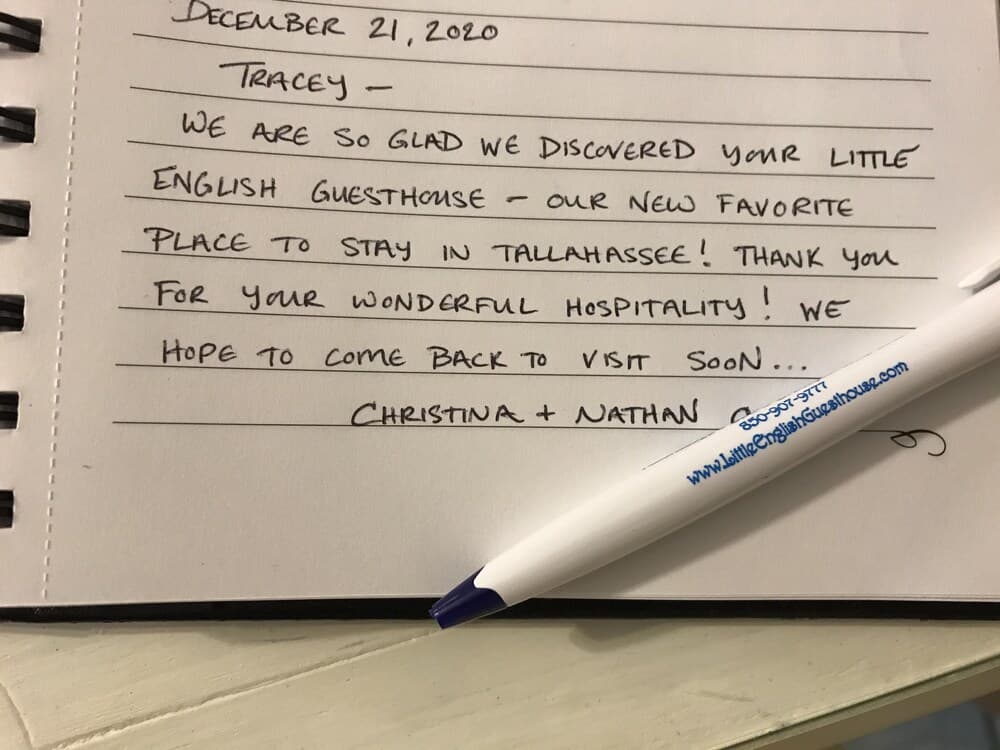 DECEMBER 21, 2020
TRACEY —
WE ARE SO GLAD WE DISCOVERED YOUR LITTLE
ENGLISH GUESTHOUSE — OUR NEW FAVORITE
PLACE TO STAY IN TALLAHASSEE! THANK YOU
FOR YOUR WONDERFUL HOSPITALITY! WE
HOPE TO COME BACK TO VISIT SOON...
CHRISTINA + NATHAN
850-907-9777
www.LittleEnglishGuesthouse.com